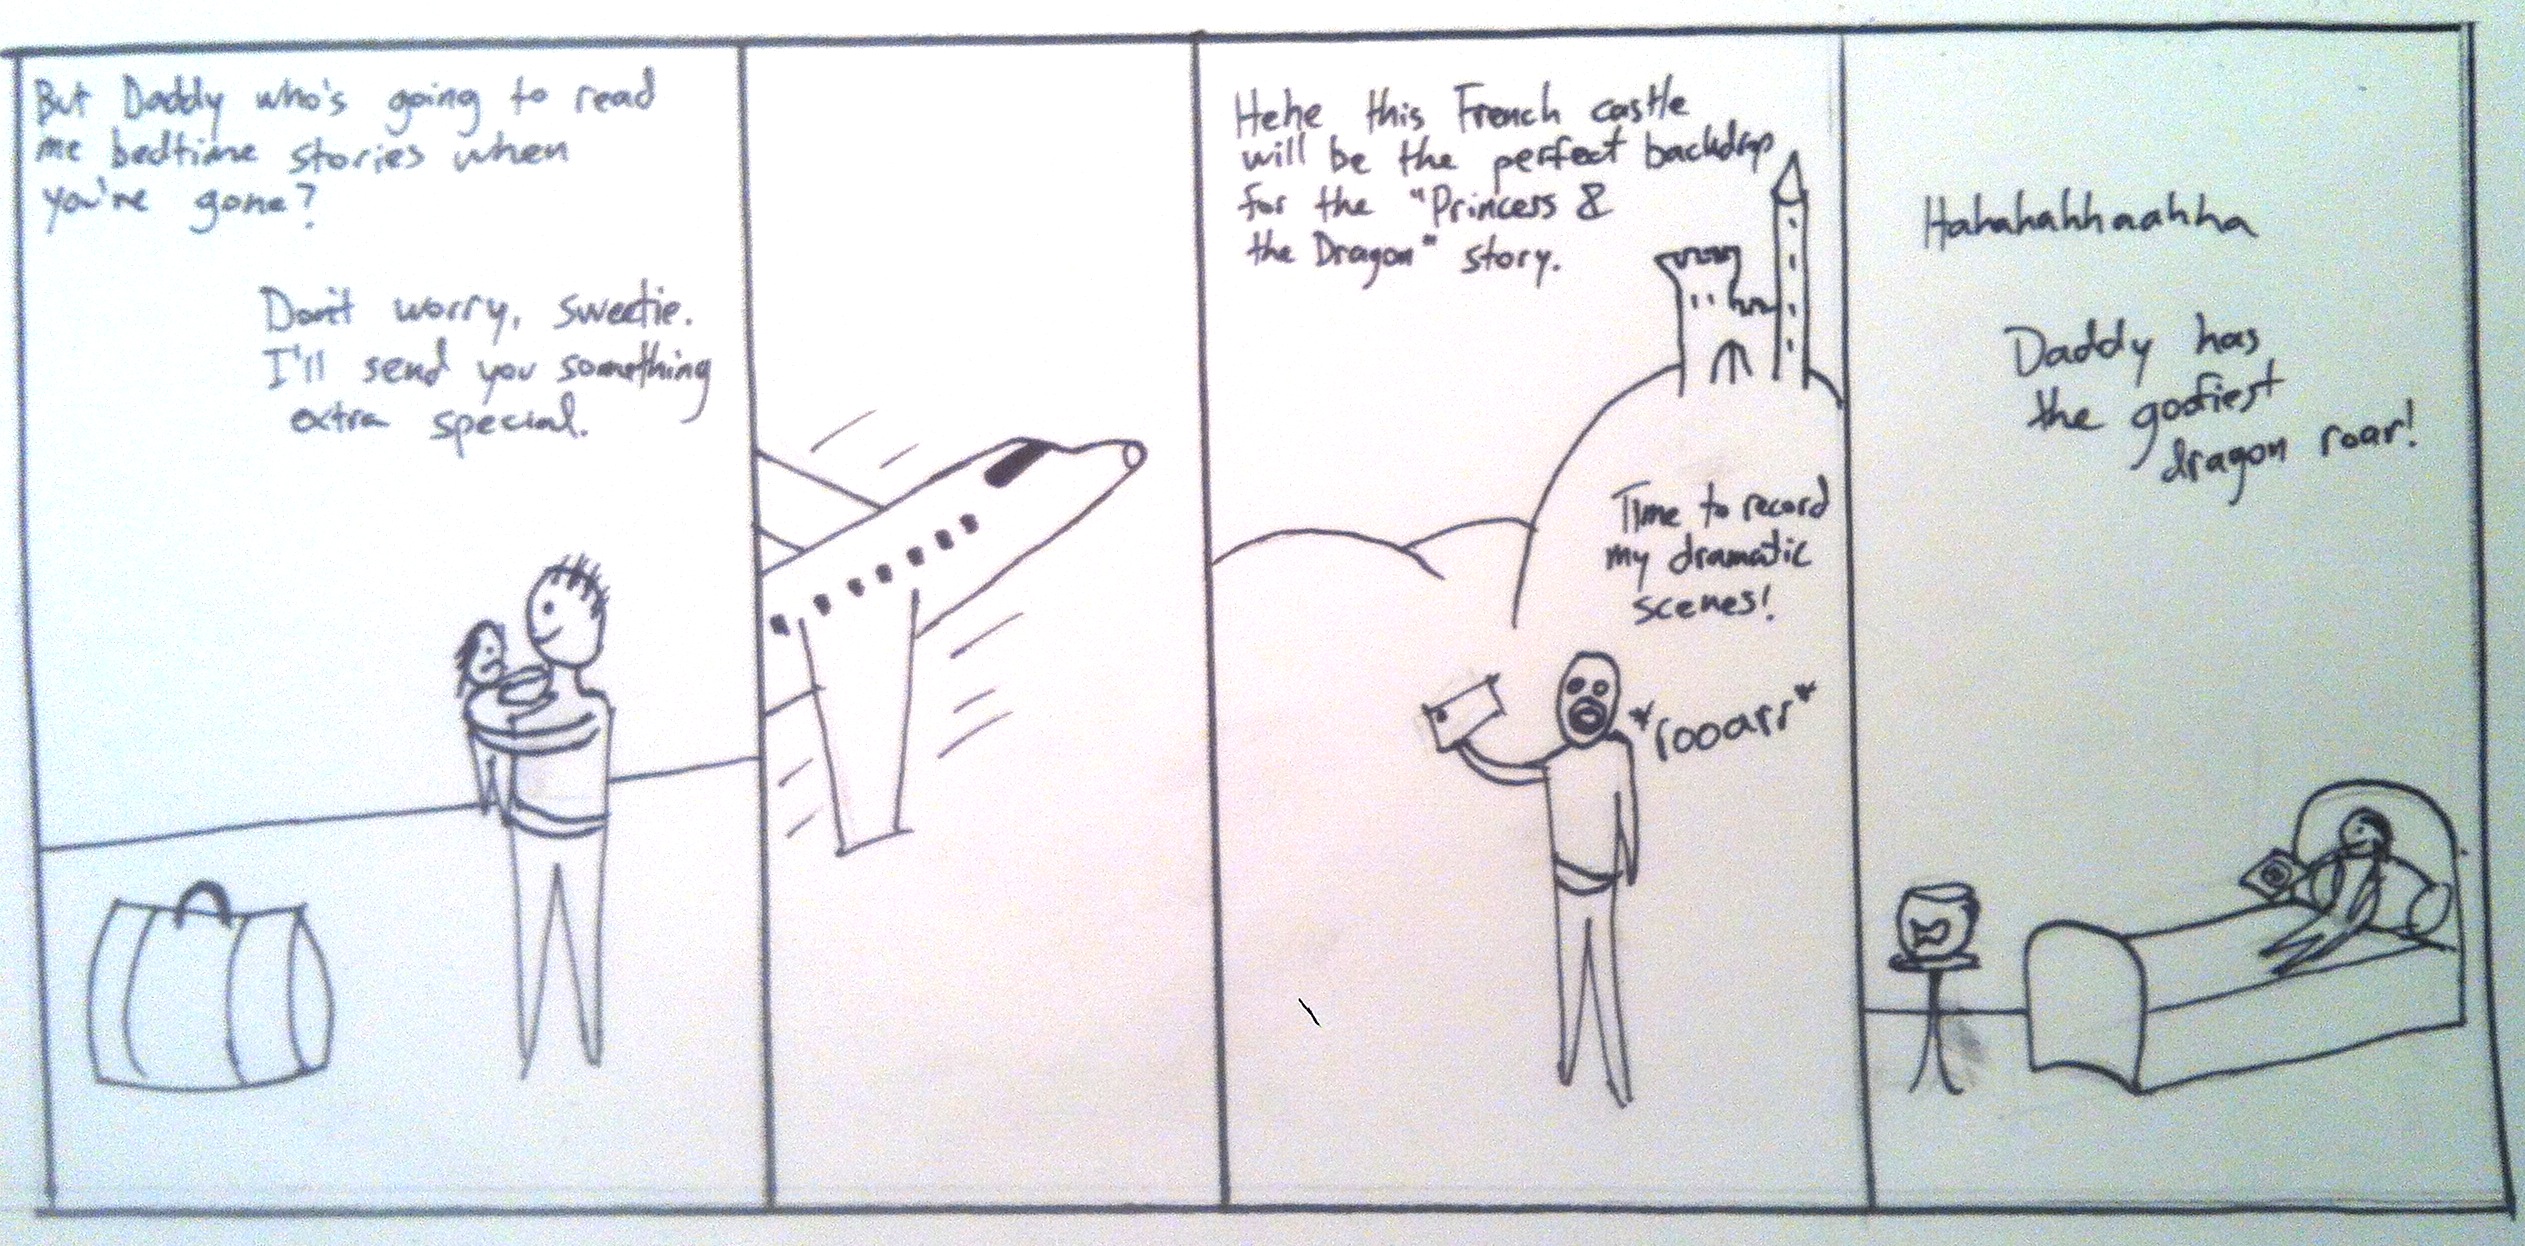 But Daddy who's going to read
me bedtime stories when
you're gone?
Don't worry, sweetie.
I'll send you something
extra special.
Hehe this French castle
will be the perfect backdrop
for the "Princess &
the Dragon" story.
Time to record
my dramatic
scenes!
*rooarr*
Hahahahhaahha
Daddy has
the goofiest
dragon roar!